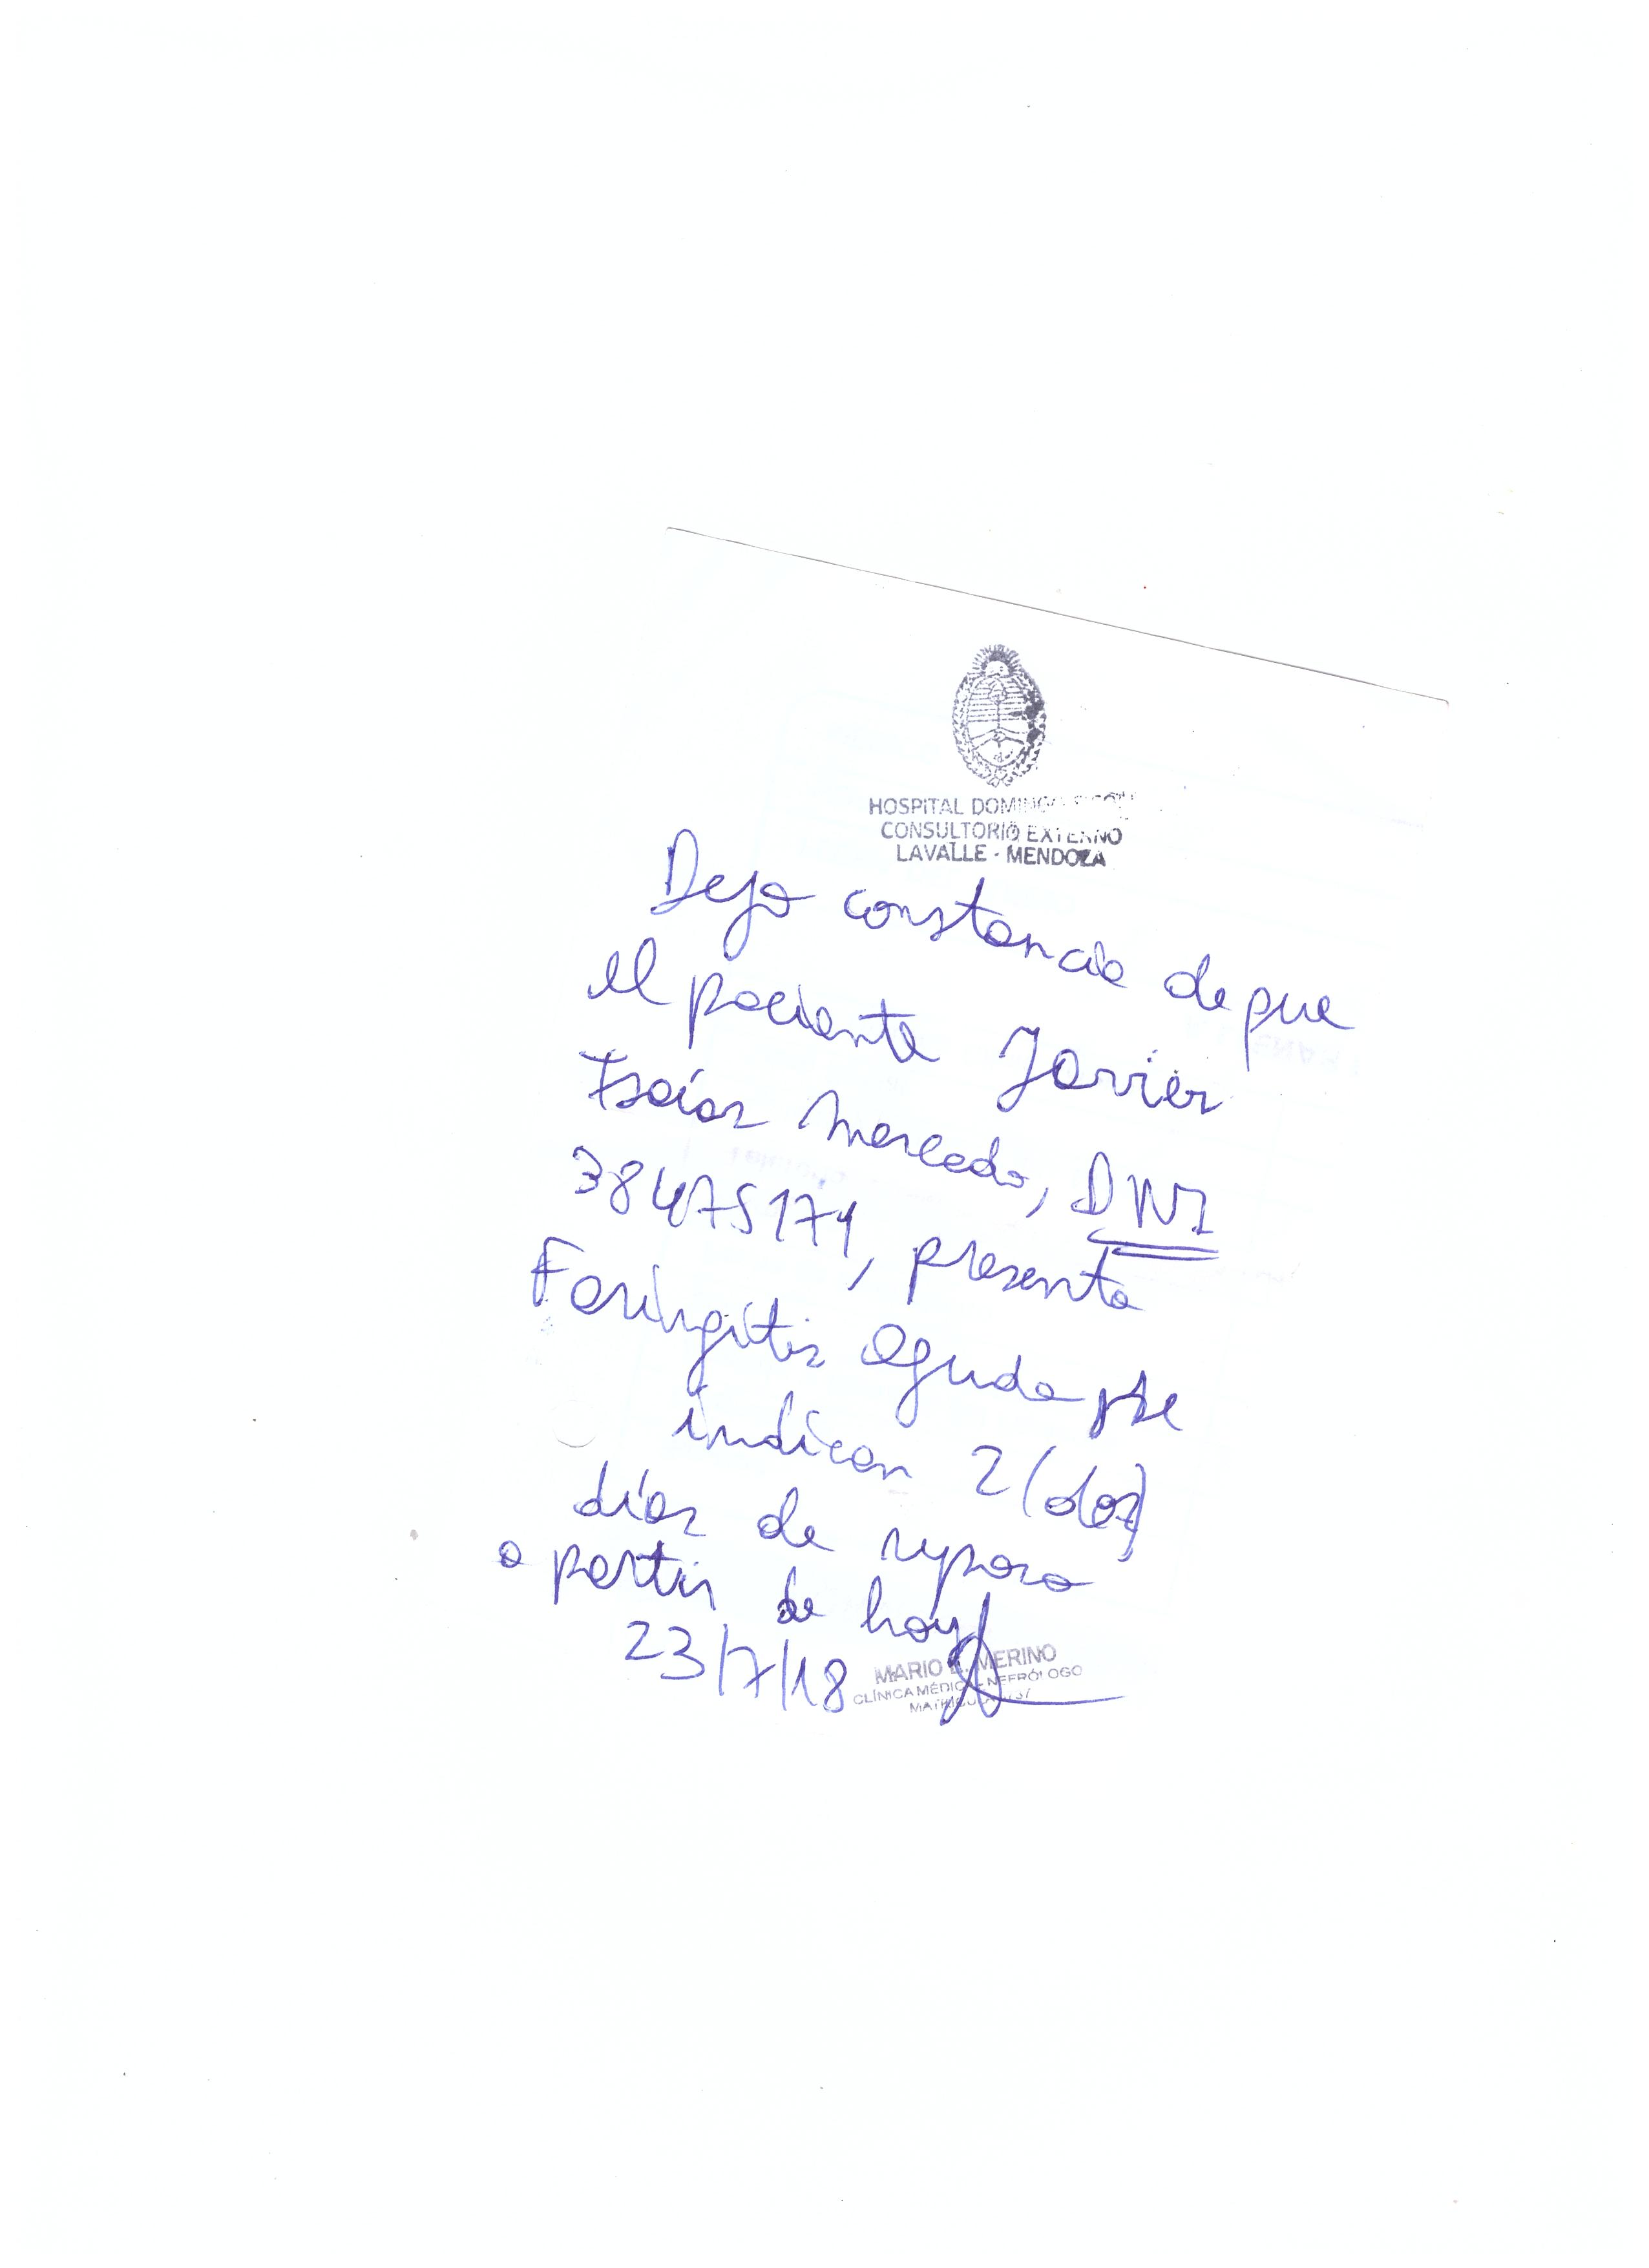 HOSPITAL DOMINGO
CONSULTORIO EXTERNO
LAVALLE - MENDOZA
Dejo constancia de que
el paciente Javier
Isaías Mercado, DNI
38475174, presenta
Faringitis Aguda y se
indican 2 (dos)
días de reposo
a partir de hoy
23/7/18
MARIO MERINO
CLÍNICA MÉDICA - NEFRÓLOGO